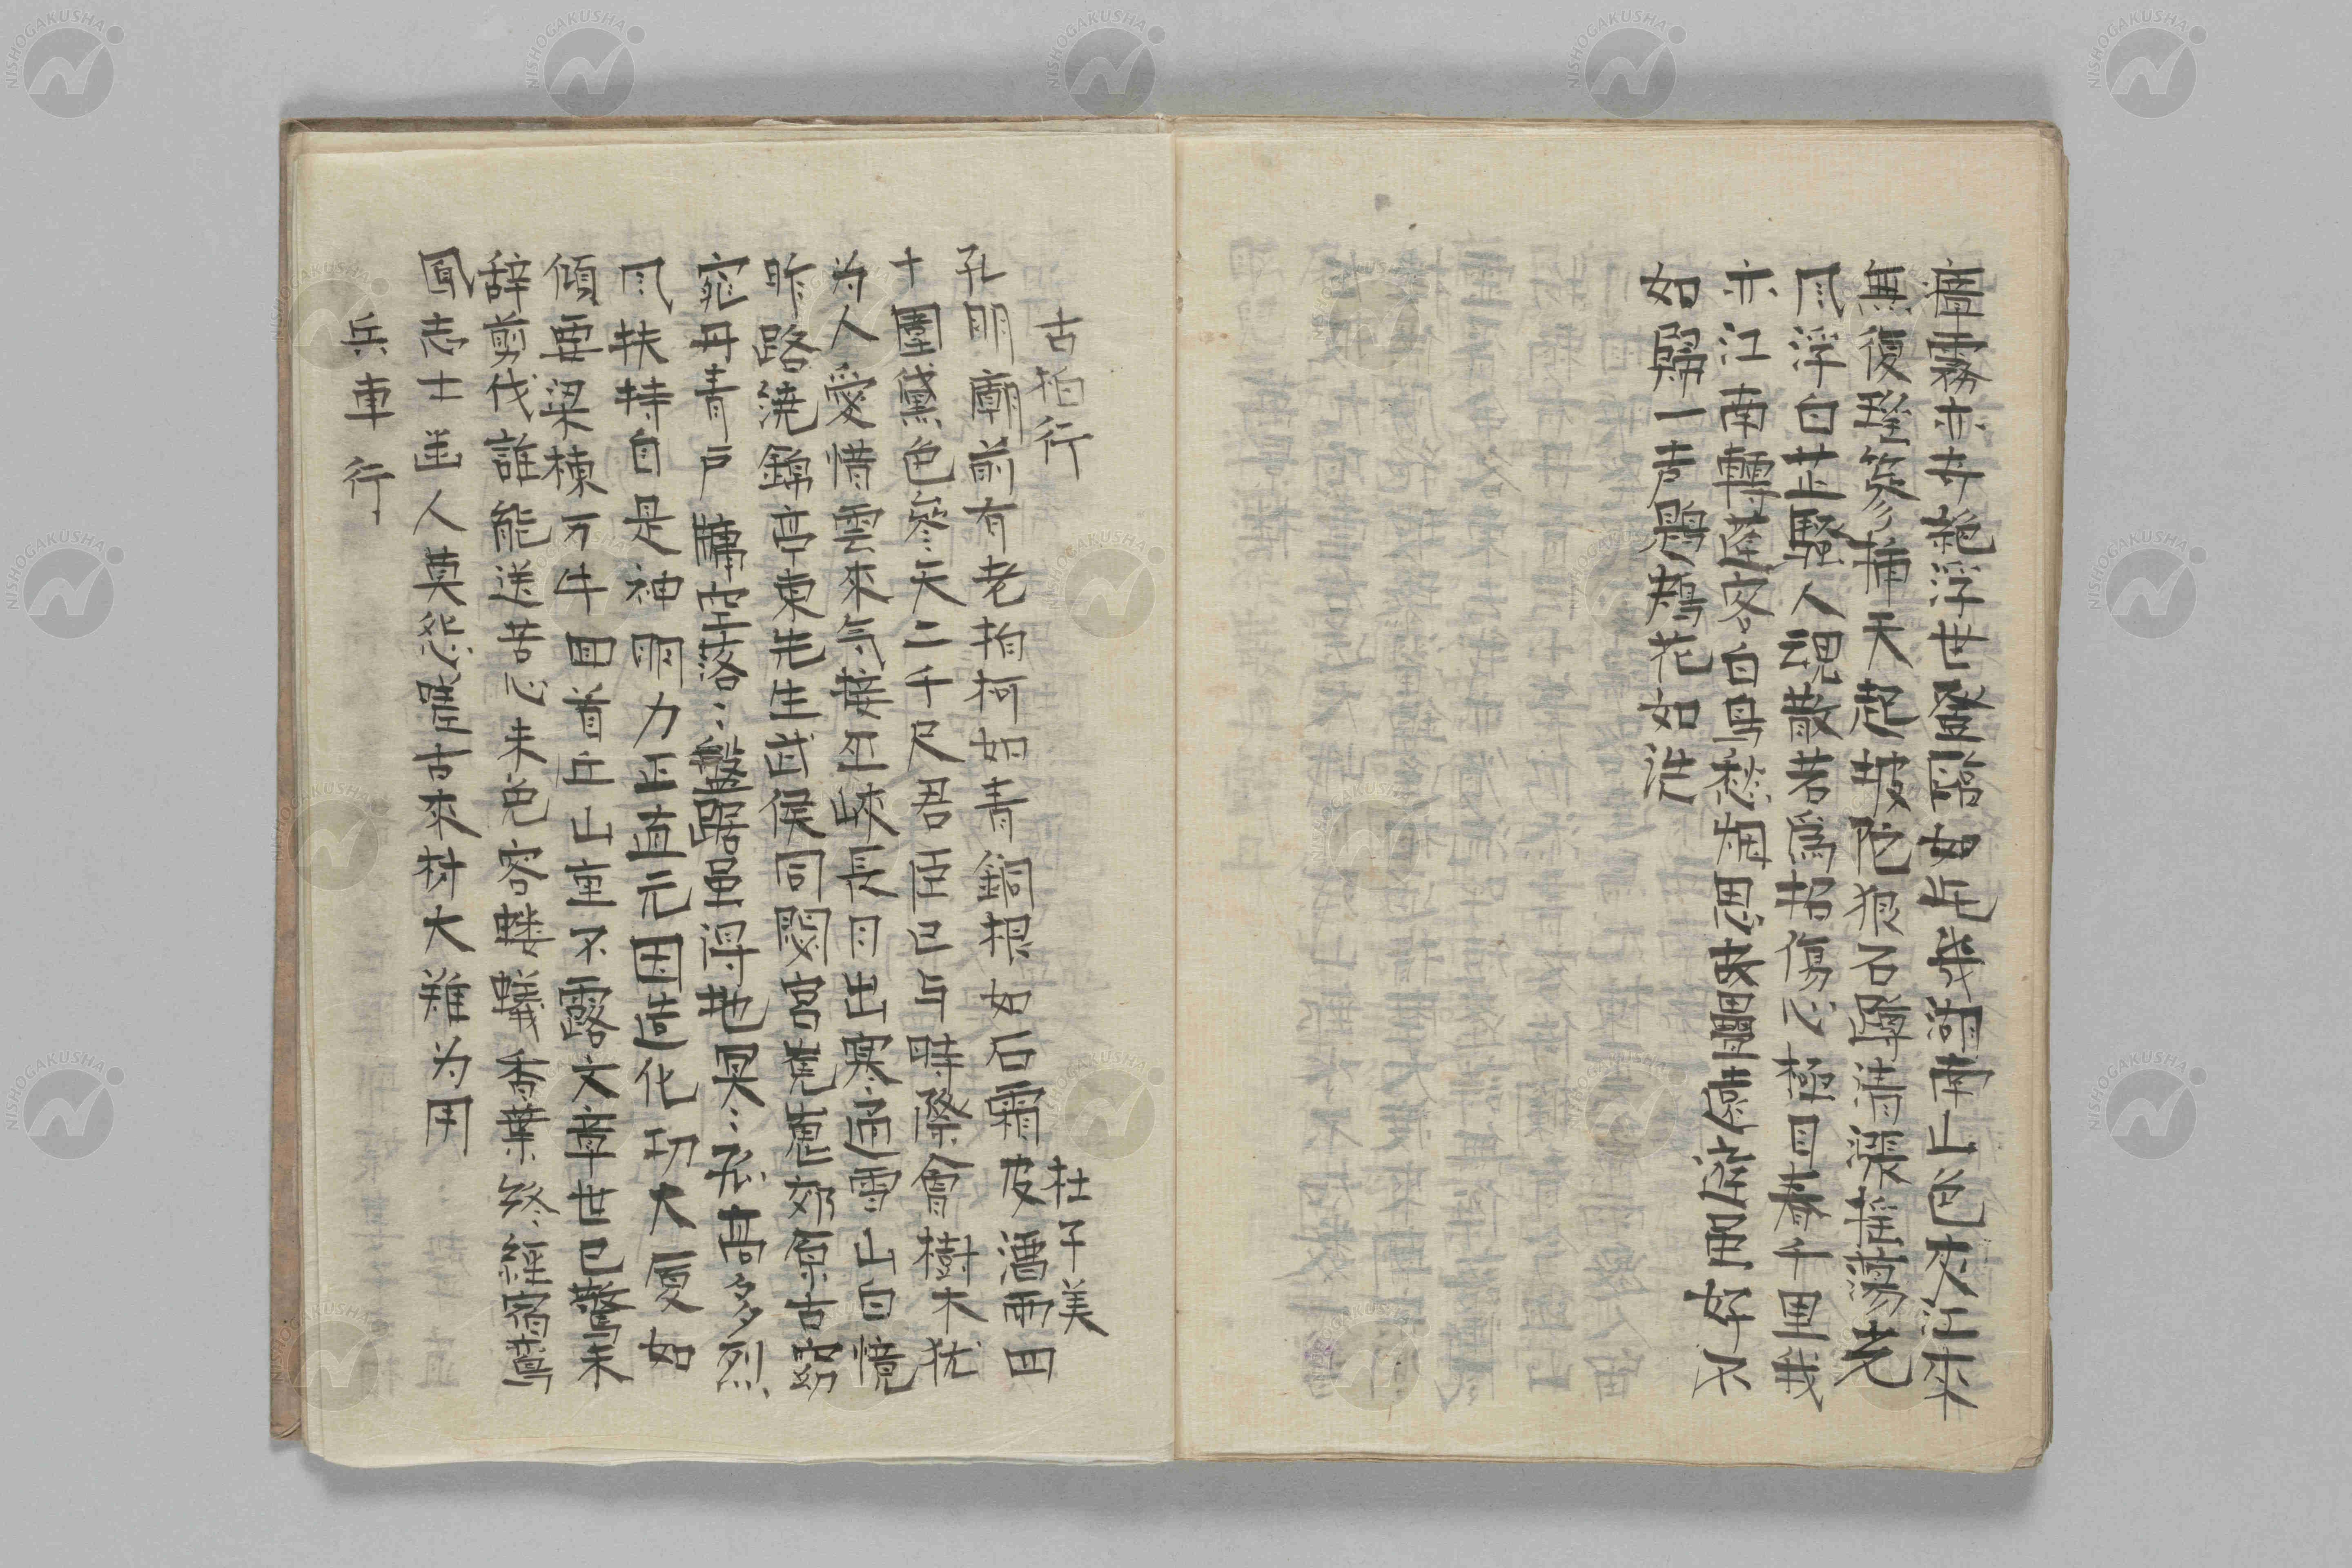 瘴霧亦寺艶浮世發臨如此幾湖南山色夾江来
無復瑤簪插天起坡陀狼石蹲清漲揺蕩老
風浮白芷騒人魂散若為招傷心極目春千里我
亦江南轉蓬客白鳥愁烟思
如歸一声鶗鴂花如洗
古柏行 杜子美
孔明廟前有老柏柯如青銅根如石霜皮溜雨四
十圍黛色參天二千尺君臣已与時際會樹木犹
为人愛惜雲來气接巫峽長月出寒通雪山白憶
昨路遶錦亭東先生武侯同閟宮郊原古窈
窕丹青戸牖空落〻盤踞虽得地冥〻孤高多烈
風扶持自是神明力正直元因造化功大厦如
傾要梁棟万牛囬首丘山重不露文章世已驚未
辞剪伐誰能送苦心未免容螻蟻香葉終經宿鸞
鳳志士幽人莫怨嗟古來材大難为用
兵車行
NISHOGAKUSHA